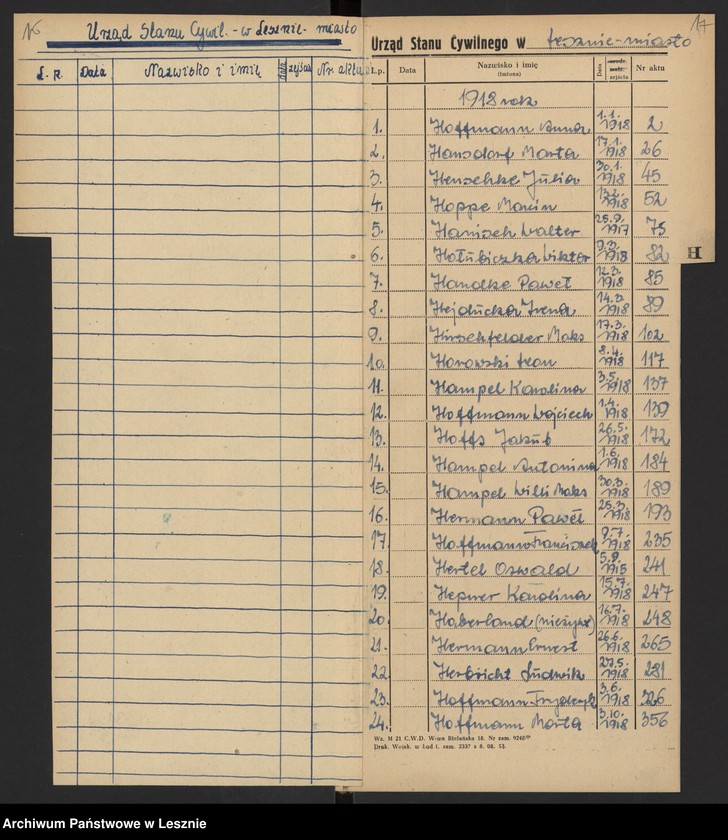 16
Urząd Stanu Cywil. - w Lesznie - miasto
L. P. Data Nazwisko i imię Data zejścia Nr. aktu
17
Urząd Stanu Cywilnego w Lesznie-miasto
L.p. Data Nazwisko i imię (Imiona) Data urodz. małż. zejścia Nr aktu
1918 rok
1. Hoffmann Anna 1.1. 1918 2
2. Hansdorf Marta 17.1. 1918 26
3. Henschke Julia 30.1. 1918 45
4. Hoppe Marcin 1918 52
5. Hanisch Walter 1917 75
6. Hołubiczka Wiktor 9.3. 1918 82
7. Handke Paweł 12.3. 1918 85
8. Hejducka Irena 14.3. 1918 89
9. Hirschfelder Maks 17.3. 1918 102
10. Horowski Leon 8.4. 1918 117
11. Hampel Karolina 3.5. 1918 137
12. Hoffmann Wojciech 1.4. 1918 139
13. Hoffs Jakub 26.5. 1918 172
14. Hampel Antonina 1.6. 1918 184
15. Hampel Willi Maks 30.3. 1918 189
16. Hermann Paweł 25.3. 1918 193
17. Hoffmann Franciszek 9.7. 1918 235
18. Hertel Oswald 5.9. 1915 241
19. Hepner Karolina 15.7. 1918 247
20. Haberland (nieżywe) 16.7. 1918 248
21. Hermann Ernest 26.6. 1918 265
22. Herbricht Ludwik 27.5. 1918 281
23. Hoffmann Fryderyk 3.6. 1918 326
24. Hoffmann Marta 3.10. 1918 356
H
Wz. M 21 C.W.D. W-wa Bielańska 18. Nr zam. 9246
Druk. Wojsk. w Łodzi. zam. 3337 z 8. 08. 53.
Archiwum Państwowe w Lesznie